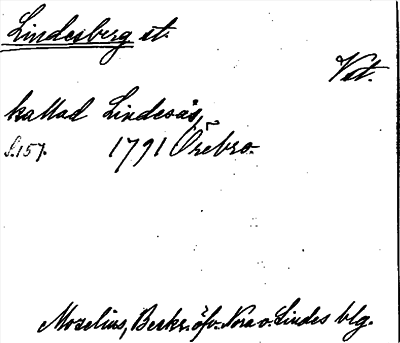 Lindesberg st.
Vst.
kallad Lindesås,
s.157. 1791 Örebro.
Mozelius, Beskr. öfv. Nora o. Lindes blg.